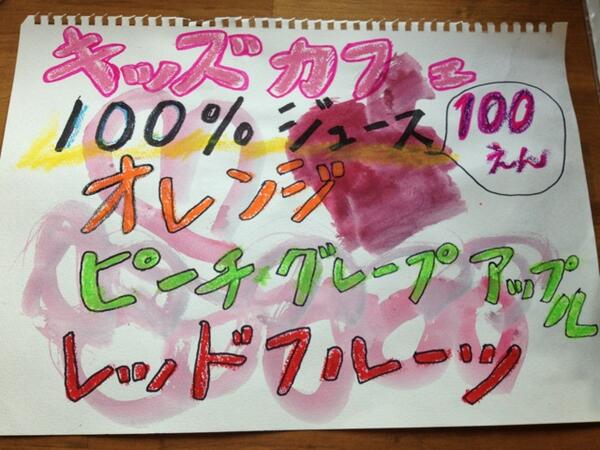 キッズカフェ
100%ジュース
100
えん
オレンジ
ピーチ・グレープアップル
レッドフルーツ